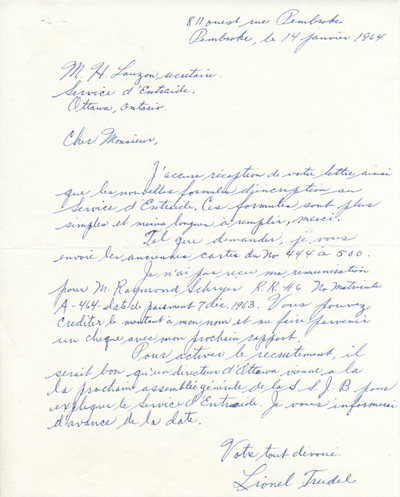 811 ouest rue Pembroke
Pembroke, le 14 janvier 1964
M. H. Lauzon, secrétaire.
Service d'Entraide,
Ottawa, Ontario.
Cher Monsieur,
J'accuse réception de votre lettre ainsi
que les nouvelles formules d'incription au
Service d'Entraide. Ces formules sont plus
simples et moins longues à remplir, merci.
Tel que demander, je vous
envoie les anciennes cartes du No 444 à 500.
Je n'ai pas reçu ma rémunération
pour M. Raymond Schryer R.R. #6 No Matricule
A-464 date de paiement 7 déc. 1963. Vous pouvez
créditer le montant à mon nom et me faire parvenir
un chèque avec mon prochain rapport.
Pour activer le recrutement, il
serait bon qu'un directeur d'Ottawa vienne a la
la prochain assemblée générale de la S. S. J. B pour
expliquer le Service d'Entraide. Je vous informerai
d'avance de la date.
Votre tout dévoué.
Lionel Trudel